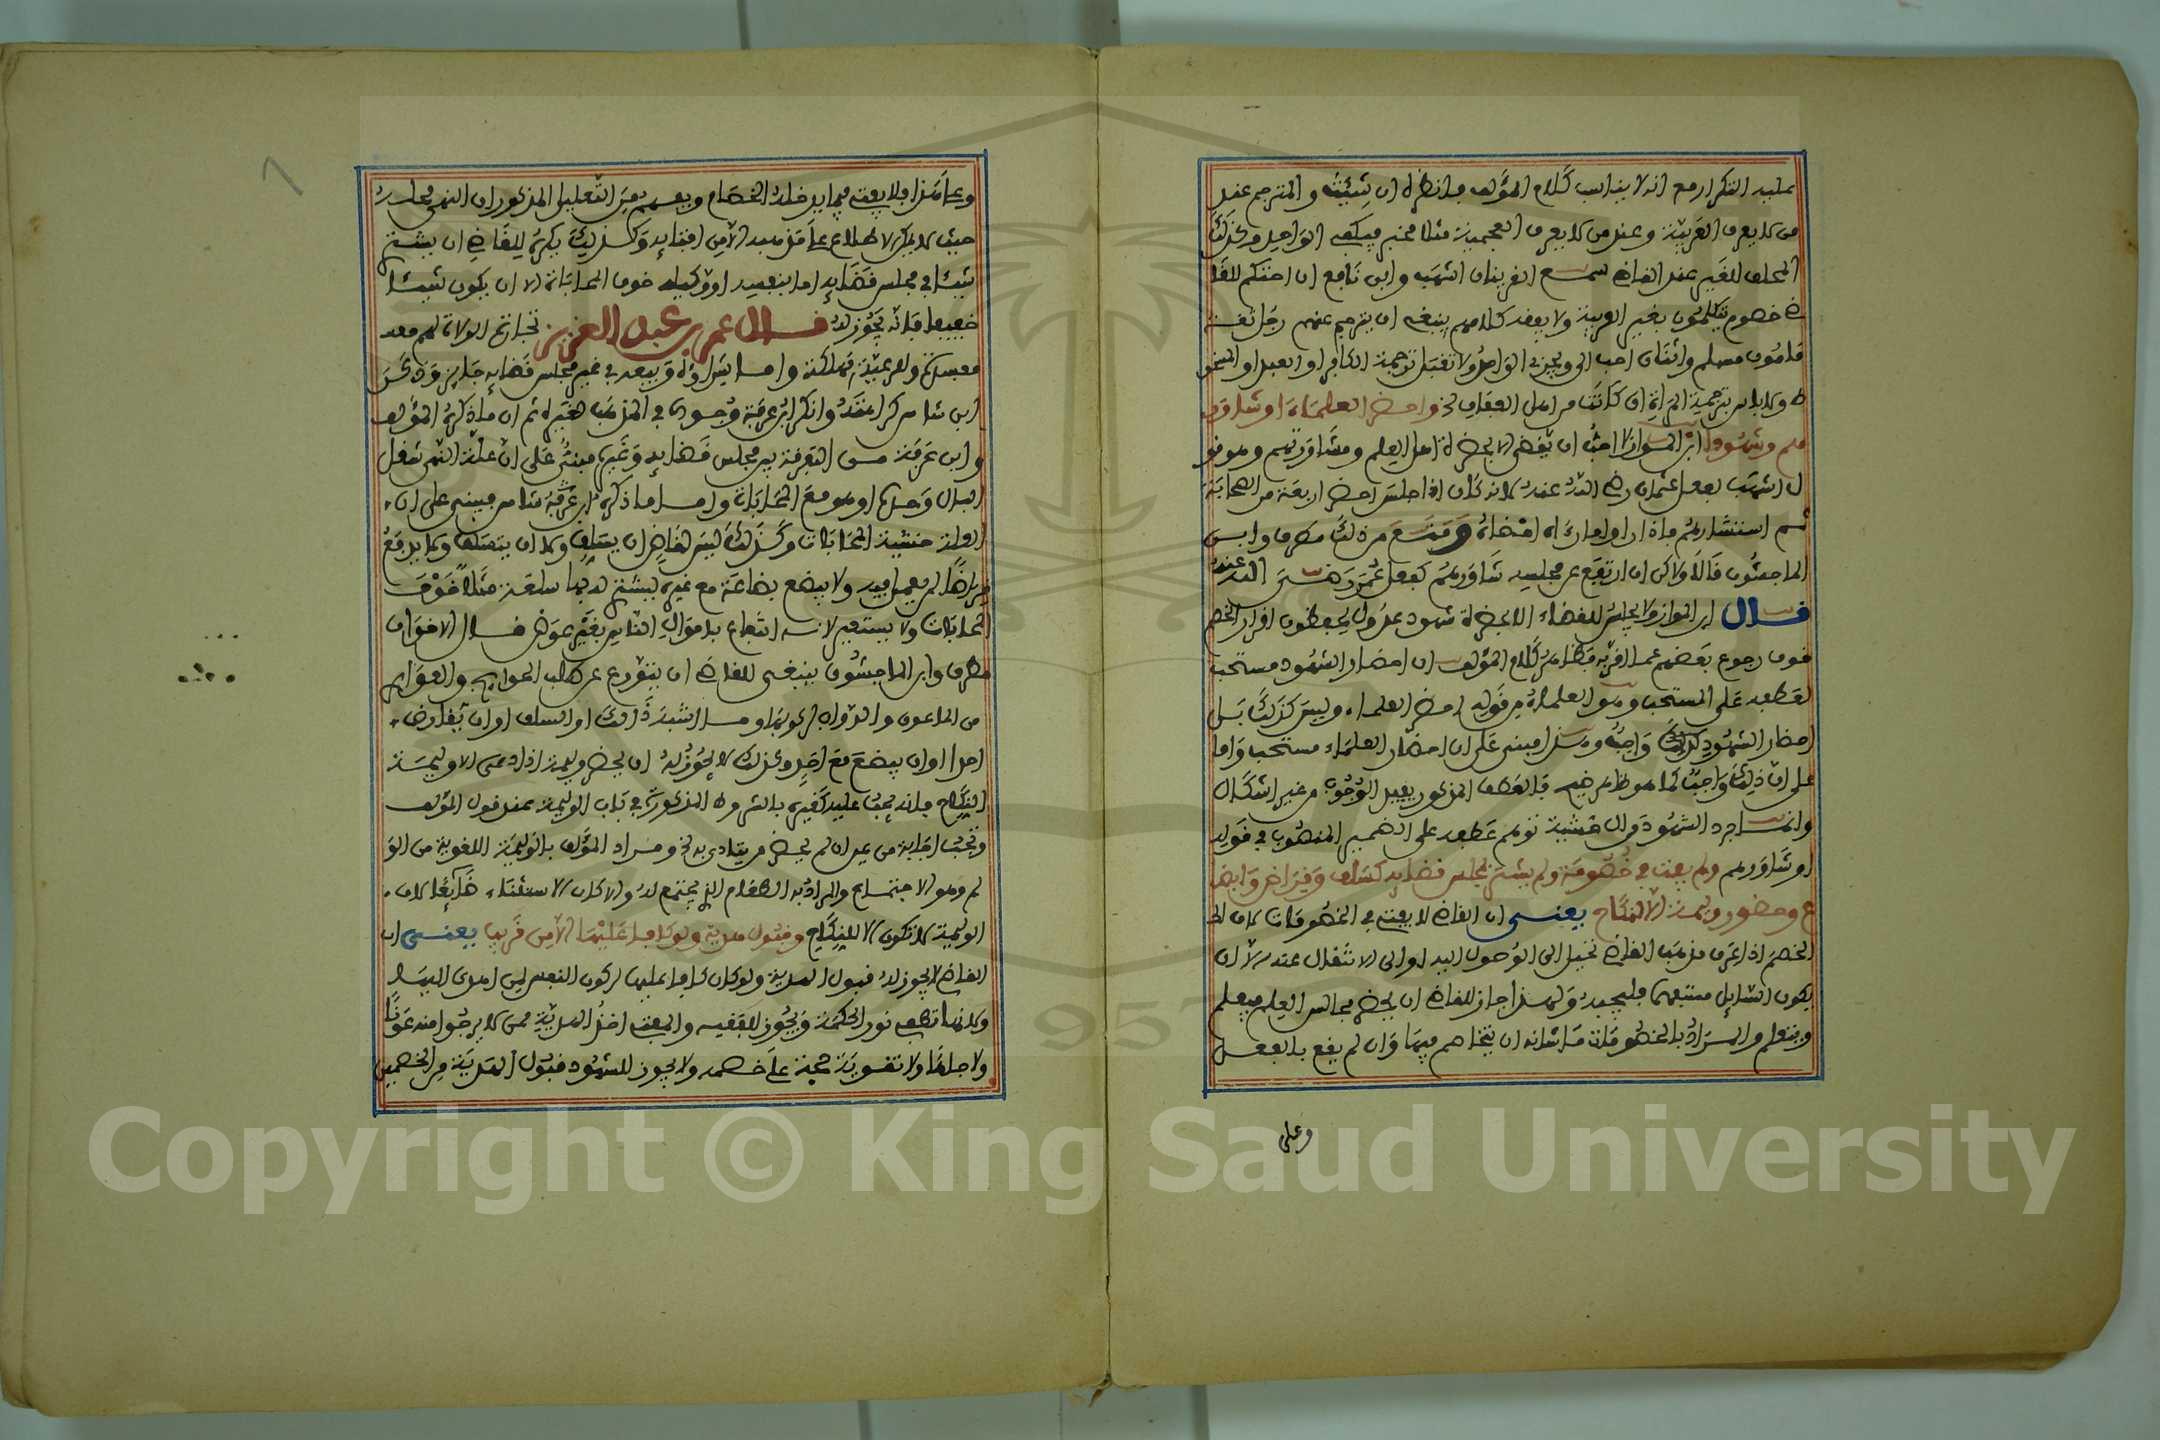 عليه التكرار مع انه لا يناسب كلام المؤلف فانظره ان شئت والمترجم عند
من لا يعرف العربية وعند من لا يعرف العجمية مثلا مخبر فيكفي الواحد وكذلك
المحلف للغير عند القاضي سمع القرينان اشهب وابن نافع ان احتكم للقا
ضي خصوم يتكلمون بغير العربية ولا يفقه كلامهم ينبغي ان يترجم عنهم رجل ثقة
مامون مسلم واثنان احب الي ويجزئ الواحد ولا تقبل ترجمة الكافر او العبد او المسخو
ط ولا باس بترجمة المراة ان كانت من اهل العفاف واحضر العلماء او شاورهم
وشهودا ابن المواز لا احب ان يقضي الا بحضرة اهل العلم ومشاورتهم وهو قو
ل اشهب بفعل عثمان رضي الله عنه لانه كان اذا جلس احضر اربعة من الصحابة
ثم استشارهم فاذا راوا ما رءاه امضاه ومنع من ذلك مطرف وابن
الماجشون قالا ولاكن ان ارتفع عن مجلسه شاورهم كفعل عمر رضي الله عنه
قال ابن المواز ولا يجلس للقضاء الا بحضرة شهود عدول يحفظون اقرار الخصم
خوف رجوع بعضهم عما اقر به فظاهر كلام المؤلف ان احضار الشهود مستحب
لعطفه على المستحب وهو العلماء من قوله احضر العلماء وليس كذلك بل
احضار الشهود واجب وهذا مبني على ان احضار العلماء مستحب واما
على ان ذلك واجب كما هو ظاهر فالعطف المذكور يفيد الوجوب من غير اشكال
وانما جرد الشهود من ال خشية توهم عطفه على الضمير المنصوب في قوله
او شاورهم ولم يفت في خصومة ولم يشتر بمجلس قضايه كسلف وقراض وابضا
ع وحضور وليمة الا لنكاح يعني ان القاضي لا يفتي في الخصومات لان
الخصم اذا عرف مذهب القاضي تحيل الى الوصول اليه او الى الانتقال عنه الا ان
يكون السايل متفقها فليجبه ولهذا جاز للقاضي ان يحضر مجالس العلم فيعلم
ويتعلم والمراد بالخصومات ما شانه ان يتخاصم فيها وان لم يقع بالفعل
وعلى
وعلى هذا فلا يفتي فيما يدخله الخصام ويفهم من التعليل المذكور ان النهي محله
حيث لا يمكن الاطلاع على مذهبه الا من افتايه وكذلك يكره للقاضي ان يشتري
شيئا في مجلس قضايه اما بنفسه او وكيله خوف المحاباة الا ان يكون شيئا
خفيفا فانه يجوز له قال عمر بن عبد العزيز تجارة الولاة لهم
مفسدة وللرعية مهلكة واما شراؤه وبيعه في غير مجلس قضايه جايز وذكر
ابن شاس كراهته وانكر ابن عرفة وجوده في المذهب لغيره ثم ان ما ذكره المؤلف
وابن عرفة من التفرقة بين مجلس قضايه وغيره مبني على ان علة النهي شغل
البال وحده او هو مع المحاباة واما ما ذكره ابن عرفة شاس فمبني على ان
العلة خشية المحابات وكذلك ليس لقاض ان يسلف ولا ان يتسلف ولا يدفع
قراضا لمن يعمل فيه ولا يبضع بضاعة مع غيره ليشتري له بها سلعة مثلا خوف
المحابات ولا يستعير لانه انتفاع باموال الناس بغير عوض قال الاخوان
مطرف وابن الماجشون ينبغي للقاضي ان يتورع عن طلب الحوايج والعواري
من الماعون والدواب لركوبها وما اشبه ذالك او السلف او ان يقارض
احدا او ان يبضع مع احد وكذلك لا يجوز له ان يحضر وليمة اذا دعي الا وليمة
النكاح فانه يجب عليه كغيره بالشروط المذكورة في باب الوليمة عند قول المؤلف
وتجب اجابة من عين ان لم يحضر من يتاذى به ومراد المؤلف بالوليمة اللغوية من الو
لم وهو الاجتماع والمراد به الطعام الذي يجتمع له والا كان الاستثناء ضائعا لان
الوليمة لا تكون الا للنكاح وقبول هدية ولو كافا عليها الا من قريب يعني ان
القاضي لا يجوز له قبول الهدية ولو كان كافا عليها لركون النفس لمن اهدى اليها
ولانها تطفي نور الحكمة ويجوز للفقيه والمفتي اخذ الهدية ممن لا يرجوا منه عونا
ولا جاها ولا تقوية حجة على خصمه ولا يجوز للشهود قبول الهدية من الخصمين
Copyright © King Saud University